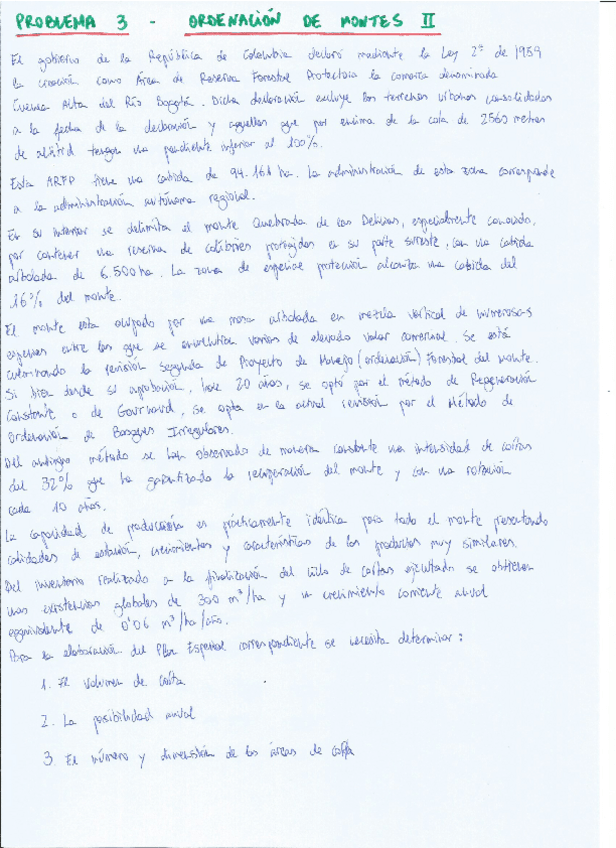 PROBLEMA 3 - ORDENACIÓN DE MONTES II
El gobierno de la República de Colombia declaró mediante la Ley 2ª de 1959
la creación como Área de Reserva Forestal Protectora la comarca denominada
Cuenca Alta del Río Bogotá. Dicha declaración excluye los terrenos urbanos consolidados
a la fecha de la declaración y aquellos que por encima de la cota de 2560 metros
de altitud tengan una pendiente inferior al 100%.
Esta ARFP tiene una cabida de 94.161 ha. La administración de esta zona corresponde
a la administración autónoma regional.
En su interior se delimita el monte Quebrada de las Delicias, especialmente conocido,
por contener una reserva de colibríes protegidos en su parte sureste, con una cabida
arbolada de 6.500 ha. La zona de especial protección alcanza una cabida del
16% del monte.
El monte esta ocupado por una masa arbolada en mezcla vertical de numerosas
especies entre las que se encuentran varias de elevado valor comercial. Se está
culminando la revisión segunda de Proyecto de Manejo (ordenación) Forestal del monte.
Si bien desde su aprobación, hace 20 años, se optó por el método de Regeneración
Constante o de Gournaud, se opta en la actual revisión por el Método de
Ordenación de Bosques Irregulares.
Del antiguo método se han observado de manera constante una intensidad de cortas
del 32% que ha garantizado la recuperación del monte y con una rotación
cada 10 años.
La capacidad de producción es prácticamente idéntica para todo el monte presentando
calidades de estación, crecimientos y características de los productos muy similares.
Del inventario realizado a la finalización del ciclo de cortas ejecutado se obtienen
unas existencias globales de 300 m³/ha y un crecimiento corriente anual
equivalente de 0'06 m³/ha/año.
Para la elaboración del Plan Especial correspondiente se necesita determinar:
1. El volumen de corta
2. La posibilidad anual
3. El número y dimensión de las áreas de corta